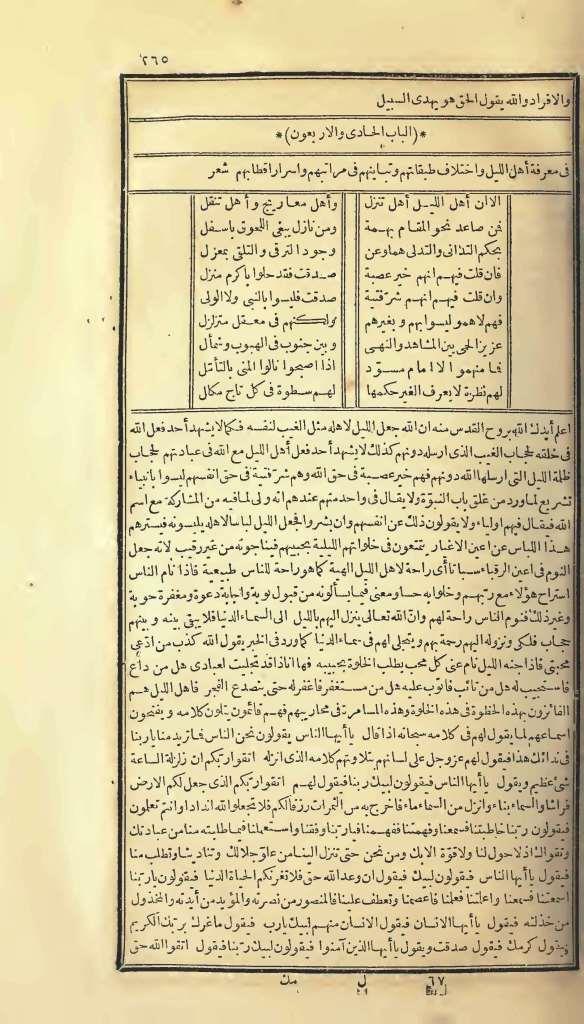 ٢٦٥
والافراد والله يقول الحق وهو يهدى السبيل
*(الباب الحادى والاربعون)*
فى معرفة أهل الليل واختلاف طبقاتهم وتباينهم فى مراتبهم واسرار اقطابهم شعر
الا ان أهل الليل أهل تنزل وأهل معاريج وأهل تنقل
فمن صاعد نحو المقام بهمة ومن نازل يبغى اللحوق باسفل
بحكم التدانى والتدلى هما وعن وجود الترقى والتلقى بمعزل
فان قلت فيهم انهم خير عصبة صدقت فقد حلوا باكرم منزل
وان قلت فيهم انهم شر فتية صدقت فليسوا بالنبى ولا الولى
فهم لا همو ليسوا بهم وبغيرهم ولكنهم فى معقل متزلزل
عزيز الحمى بين المشاهد والنهى وبين جنوب فى الهبوب وشمأل
فما منهمو الا امام مسود اذا اصبحوا نالوا المنى بالتأمل
لهم نظرة لا يعرف الغير حكمها لهم سطوة فى كل تاج مكلل
اعلم أيدك الله بروح القدس منه ان الله جعل الليل لاهله مثل الغيب لنفسه فكما لا يشهد أحد فعل الله
فى خلقه لحجاب الغيب الذى ارسله دونهم كذلك لا يشهد أحد فعل أهل الليل مع الله فى عبادتهم لحجاب
ظلمة الليل التى ارسلها الله دونهم فهم خير عصبة فى حق الله وهم شر فتية فى حق انفسهم ليسوا بانبياء
تشريع لما ورد من غلق باب النبوة ولا يقال فى واحد منهم عندهم انه ولى لما فيه من المشاركة مع اسم
الله فيقال فيهم اولياء ولا يقولون ذلك عن انفسهم وان بشروا فجعل الليل لباسا لاهله يلبسونه فيسترهم
هذا اللباس عن اعين الاغيار يتمتعون فى خلواتهم الليلية بحبيبهم فيناجونه من غير رقيب لانه جعل
النوم فى اعين الرقباء سباتا أى راحة لاهل الليل الهية كما هو راحة للناس طبيعية فاذا نام الناس
استراح هؤلاء مع ربهم وخلوا به حسا ومعنى فيما يسألونه من قبول توبة واجابة دعوة ومغفرة حوبة
وغير ذلك فنوم الناس راحة لهم وان الله تعالى ينزل اليهم بالليل الى السماء الدنيا فلا يبقى بينه وبينهم
حجاب فلكى ونزوله اليهم رحمة بهم ويتجلى لهم فى سماء الدنيا كما ورد فى الخبر يقول الله كذب من ادعى
محبتى فاذا جنه الليل نام عنى كل محب يطلب الخلوة بحبيبه فها انا ذا قد تجليت لعبادى هل من داع
فاستجيب له هل من تائب فاتوب عليه هل من مستغفر فاغفر له حتى ينصدع الفجر فاهل الليل هم
الفائزون بهذه الحظوة فى هذه الخلوة وهذه المسامرة فى محاريبهم فهم قائمون يتلون كلامه ويفتحون
اسماعهم لما يقول لهم فى كلامه سبحانه اذا قال يا أيها الناس يقولون نحن الناس فما تريد منا يا ربنا
فى ندائك هذا فيقول لهم عز وجل على لسانهم بتلاوتهم كلامه الذى انزله اتقوا ربكم ان زلزلة الساعة
شئ عظيم ويقول يا أيها الناس فيقولون لبيك ربنا فيقول لهم اتقوا ربكم الذى جعل لكم الارض
فراشا والسماء بناء وانزل من السماء ماء فاخرج به من الثمرات رزقا لكم فلا تجعلوا لله اندادا وانتم تعلمون
فيقولون ربنا خاطبتنا فسمعنا وفهمتنا ففهمنا فيا ربنا وفقنا واستعملنا فيما طلبته منا من عبادتك
وتقواك اذ لا حول لنا ولا قوة الا بك ومن نحن حتى تنزل الينا من علو جلالك وتنادينا وتطلب منا
فيقول يا أيها الناس فيقولون لبيك فيقول ان وعد الله حق فلا تغرنكم الحياة الدنيا فيقولون يا ربنا
اسمعتنا فسمعنا واعلمتنا فعلمنا فاعصمنا وتعطف علينا فالمنصور من نصرته والمؤيد من أيدته والمخذول
من خذلته فيقول يا أيها الانسان فيقول الانسان منهم لبيك يا رب فيقول ما غرك بربك الكريم
فيقول كرمك فيقول صدقت ويقول يا أيها الذين آمنوا فيقولون لبيك ربنا فيقول اتقوا الله حق
٦٧ ل مك